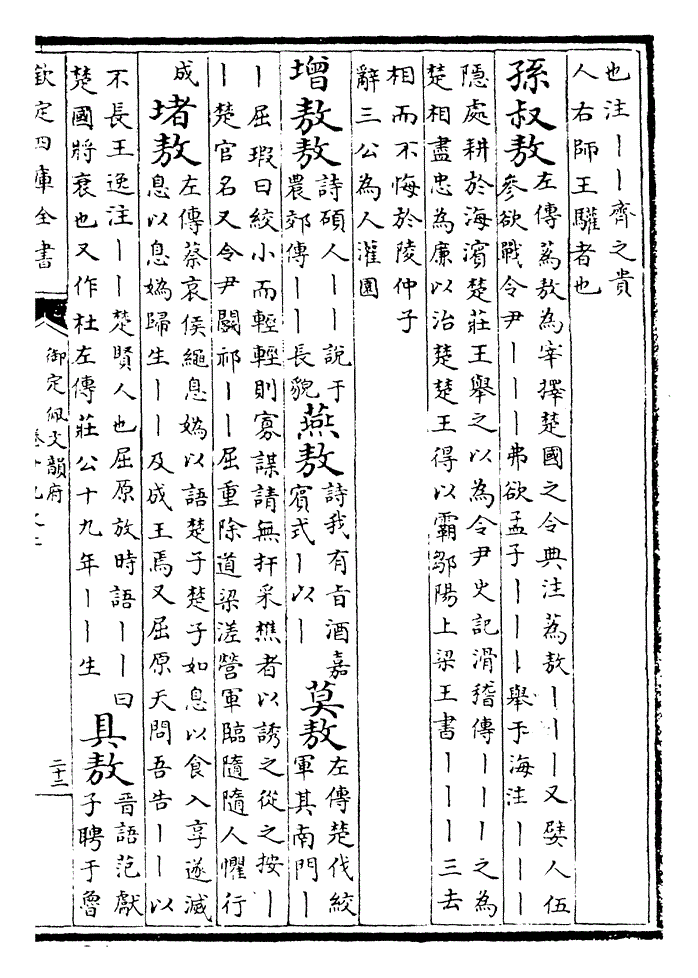 也注丨丨齊之貴
人右師王驩者也
孫叔敖
左傳蒍敖為宰擇楚國之令典注蒍敖丨丨丨又嬖人伍
參欲戰令尹丨丨丨弗欲孟子丨丨丨舉于海注丨丨丨
隱處耕於海濱楚莊王舉之以為令尹史記滑稽傳丨丨丨之為
楚相盡忠為廉以治楚楚王得以霸鄒陽上梁王書丨丨丨三去
相而不悔於陵仲子
辭三公為人灌園
增敖敖
詩碩人丨丨說于
農郊傳丨丨長貌
燕敖
詩我有旨酒嘉
賓式丨以丨
莫敖
左傳楚伐絞
軍其南門丨
丨屈瑕曰絞小而輕輕則寡謀請無扞采樵者以誘之從之按丨
丨楚官名又令尹鬬祁丨丨屈重除道梁溠營軍臨隨隨人懼行
成
堵敖
左傳蔡哀侯繩息媯以語楚子楚子如息以食入享遂滅
息以息媯歸生丨丨及成王焉又屈原天問吾告丨丨以
不長王逸注丨丨楚賢人也屈原放時語丨丨曰
楚國將衰也又作杜左傳莊公十九年丨丨生
具敖
晉語范獻
子聘于魯
欽定四庫全書
御定佩文韻府
卷十九之
二十二